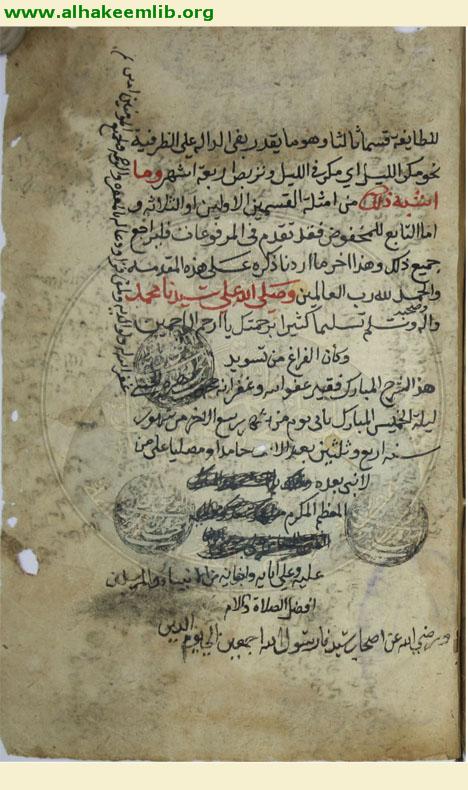 www.alhakeemlib.org
لطايفة قسما ثالثا وهو ما يقدر بفي الدالة على الظرفية
نحو مكر الليل اي مكر في الليل وتربص اربعة اشهر وما
اشبه ذلك من امثلة القسمين الاولين او الثلاثة و
اما التابع للمخفوض فقد تقدم في المرفوعات فليراجع
جميع ذلك وهذا اخر ما اردنا ذكره على هذه المقدمة
والحمد لله رب العالمين وصلى الله على سيدنا محمد
وصحبه
واله وسلم تسليما كثيرا برحمتك يا ارحم الراحمين
وكان الفراغ من تسويد
هذا الشرح المبارك فقيد عفو الله وغفرانه
ليلة الخميس المبارك ثاني يوم من شهر ربيع الاخر من شهور
سنة اربع وثلثين بعد الالف حامدا ومصليا على من
لا نبي بعده
المعظم المكرم
عليه وعلى ابايه واخوانه من الانبياء والمرسلين
افضل الصلاة والسلام
ورضي الله عن اصحاب سيدنا رسول الله اجمعين الى يوم الدين